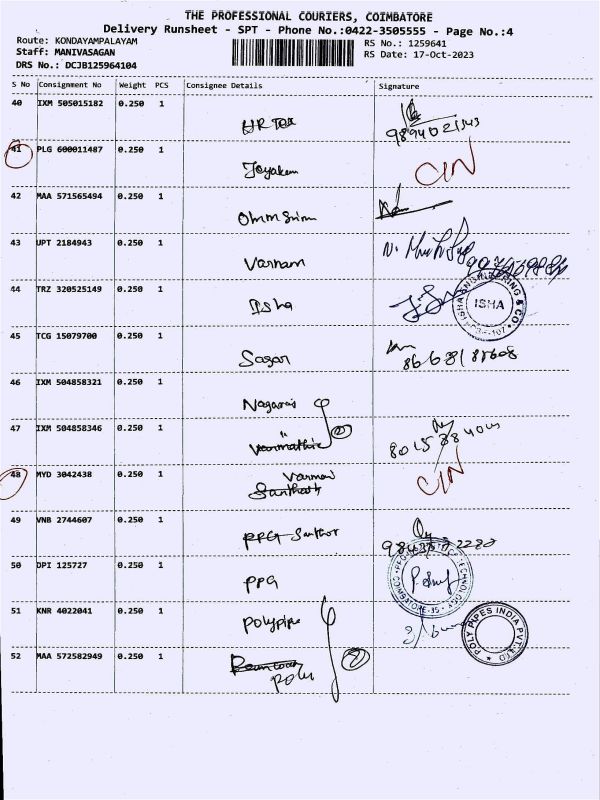 THE PROFESSIONAL COURIERS, COIMBATORE
Delivery Runsheet - SPT - Phone No.:0422-3505555 - Page No.:4
Route: KONDAYAMPALAYAM
RS No.: 1259641
Staff: MANIVASAGAN
RS Date: 17-Oct-2023
DRS No.: DCJB125964104
S No Consignment No Weight PCS Consignee Details Signature
40 IXM 505015182 0.250 1
9894021343
41 PLG 600011487 0.250 1
Joyakem CIN
42 MAA 571565494 0.250 1
Ohmm
43 UPT 2184943 0.250 1
Varnam
44 TRZ 320525149 0.250 1
Isha
ISHA ENGINEERING & CO
45 TCG 15079700 0.250 1
Sagar
46 IXM 504858321 0.250 1
Nagaraj
47 IXM 504858346 0.250 1
" 2
48 MYD 3042438 0.250 1
CIN
49 VNB 2744607 0.250 1
PPG
50 DPI 125727 0.250 1
PPG
COIMBATORE-35
51 KNR 4022041 0.250 1
Polypipe
POLY PIPES INDIA PVT. LTD
52 MAA 572582949 0.250 1
Poly 2